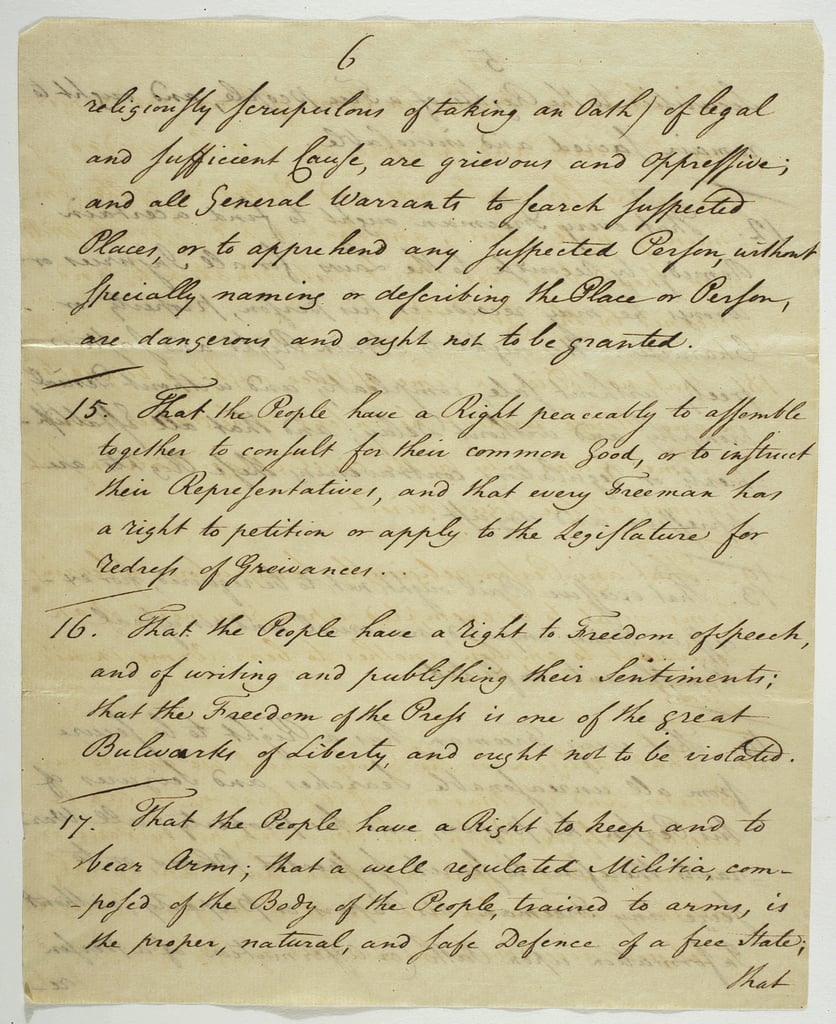 6
religiously scrupulous of taking an Oath) of legal
and sufficient Cause, are grievous and oppressive;
and all General Warrants to search suspected
Places, or to apprehend any suspected Person, without
specially naming or describing the Place or Person,
are dangerous and ought not to be granted.
15. That the People have a Right peaceably to assemble
together to consult for their common Good, or to instruct
their Representatives, and that every Freeman has
a right to petition or apply to the Legislature for
redress of Greivances.
16. That the People have a right to Freedom of speech,
and of writing and publishing their Sentiments;
that the Freedom of the Press is one of the great
Bulwarks of Liberty, and ought not to be violated.
17. That the People have a Right to keep and to
bear Arms; that a well regulated Militia, com-
-posed of the Body of the People, trained to arms, is
the proper, natural, and safe Defence of a free State;
that